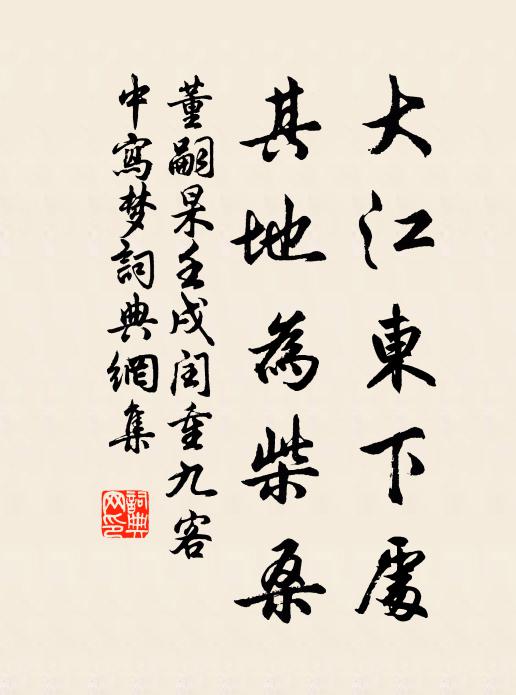 大江東下處
其地為柴桑
董嗣杲壬戌閏重九客
中寫梦詞典網集
詞典网印